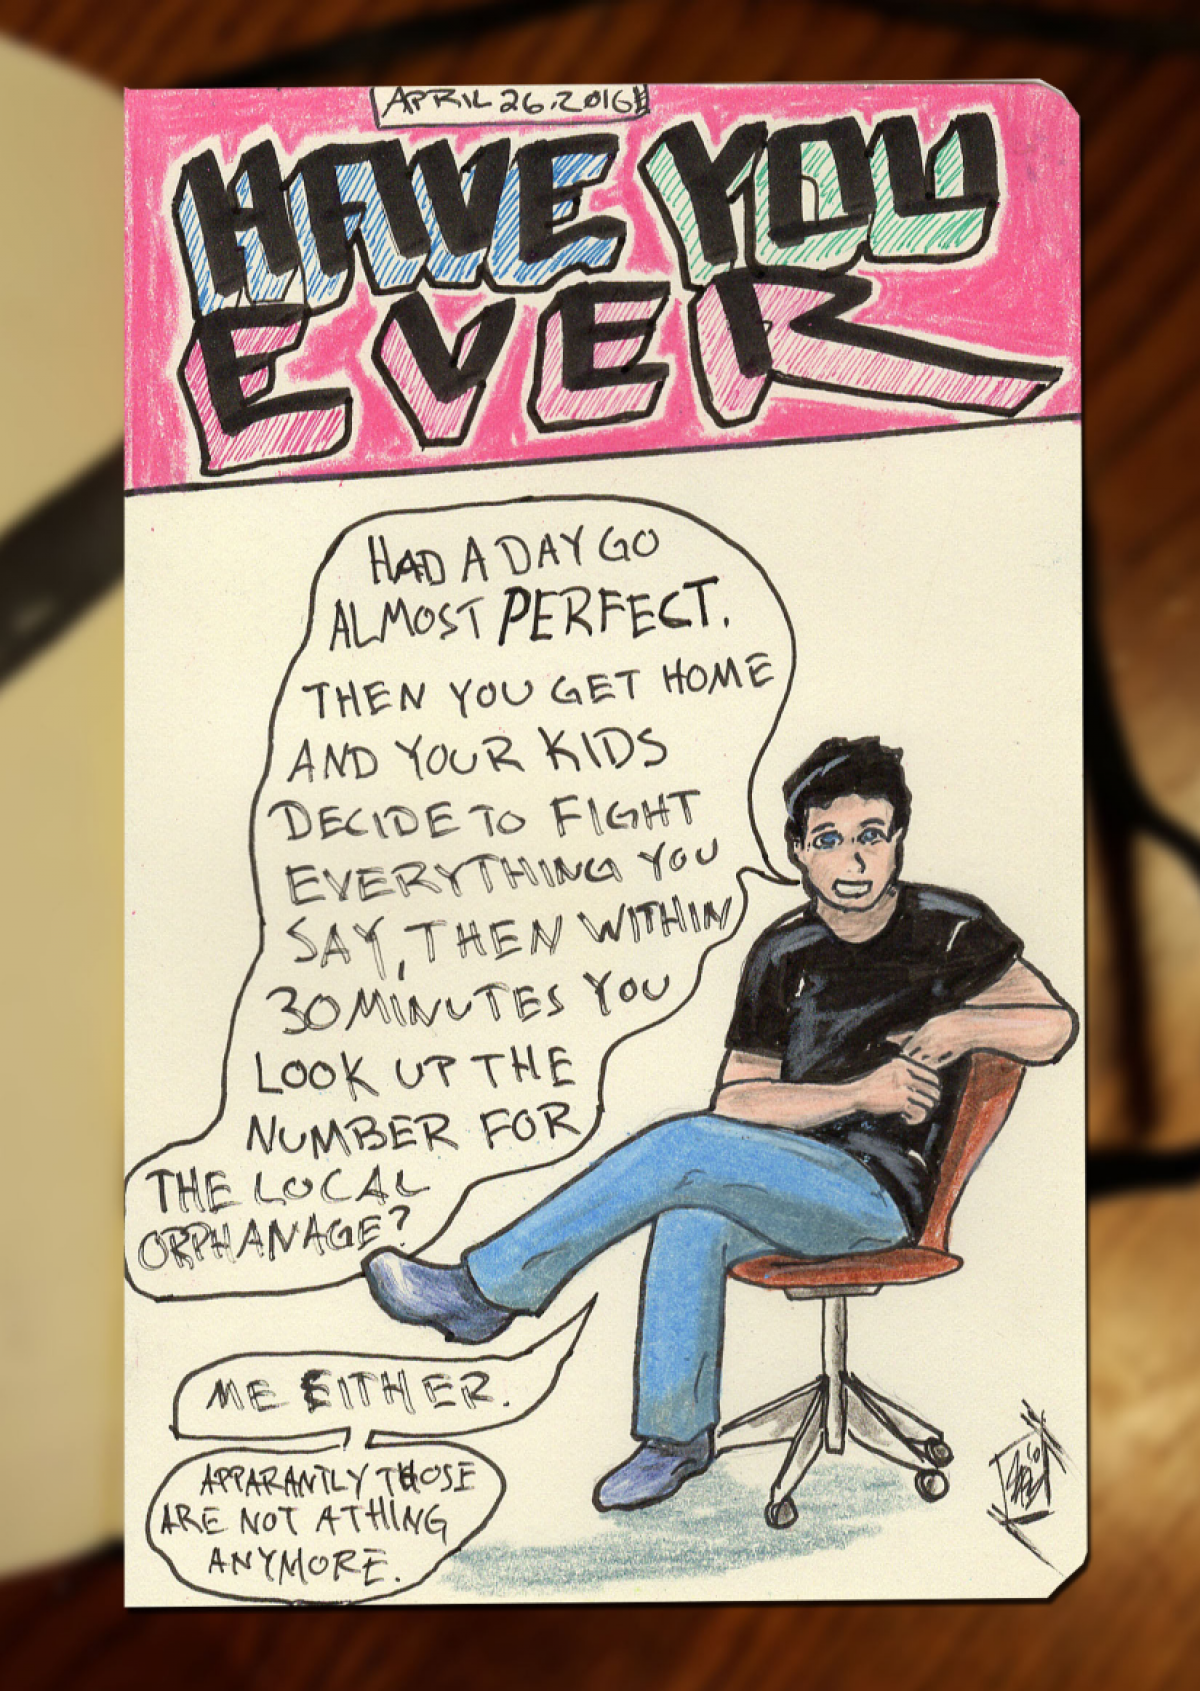 APRIL 26, 2016
HAVE YOU
EVER
HAD A DAY GO
ALMOST PERFECT.
THEN YOU GET HOME
AND YOUR KIDS
DECIDE TO FIGHT
EVERYTHING YOU
SAY, THEN WITHIN
30 MINUTES YOU
LOOK UP THE
NUMBER FOR
THE LOCAL
ORPHANAGE?
ME EITHER.
APPARANTLY THOSE
ARE NOT A THING
ANYMORE.